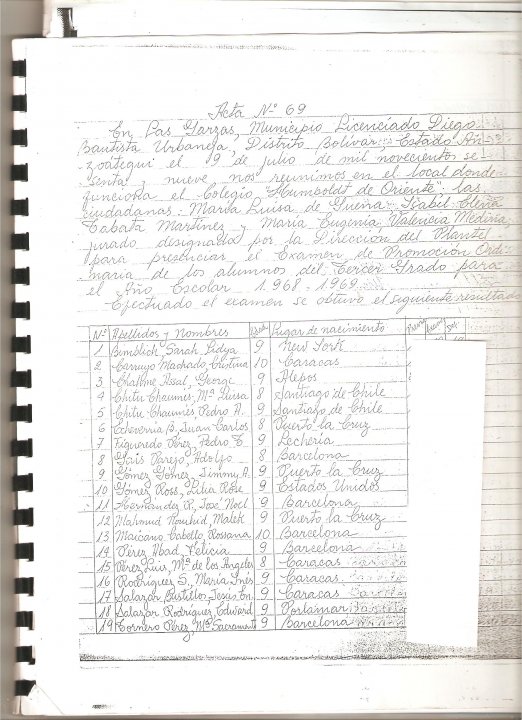 Acta N° 69
En Las Garzas, Municipio Licenciado Diego
Bautista Urbaneja, Distrito Bolívar Estado An-
zoátegui el 9 de julio de mil novecientos se-
senta y nueve nos reunimos en el local donde
funciona el Colegio "Humboldt de Oriente" las
ciudadanas: María Luisa de Guerra, Isabel Elena
Zabata Martínez y María Eugenia Valencia Medina,
jurado designado por la Dirección del Plantel
para presenciar el Examen de Promoción Ordi-
naria de los alumnos del Tercer Grado para
el Año Escolar 1968-1969.
Efectuado el examen se obtuvo el siguiente resultado
N° Apellidos y Nombres Edad Lugar de nacimiento
1 Bimblich, Sarah Lidya 9 New York
2 Carruyo Machado, Cristina 10 Caracas
3 Chalome Assal, George 9 Alepos
4 Chitu Chaumes, Mª Luisa 8 Santiago de Chile
5 Chitu Chaumes, Pedro A. 9 Santiago de Chile
6 Echeverría B, Juan Carlos 8 Puerto la Cruz
7 Figueredo Pérez, Pedro E. 9 Lechería
8 Gais Parejo, Adolfo 8 Barcelona
9 Gómez Gómez, Jimmy A. 9 Puerto la Cruz
10 Gómez Ross, Lilia Rose 9 Estados Unidos
11 Hernández R, José Noel 9 Barcelona
12 Mahmud Mahmud, Malek 9 Puerto la Cruz
13 Maicano Cabello, Rossana 10 Barcelona
14 Pérez Abad, Felicia 9 Barcelona
15 Pérez Luis, Mª de los Angeles 8 Caracas
16 Rodríguez S., María Inés 9 Caracas
17 Salazar Bustillos, Jesús En. 9 Caracas
18 Salazar Rodríguez, Edward 9 Porlamar
19 Tornero Pérez, Mª Sacramento 9 Barcelona